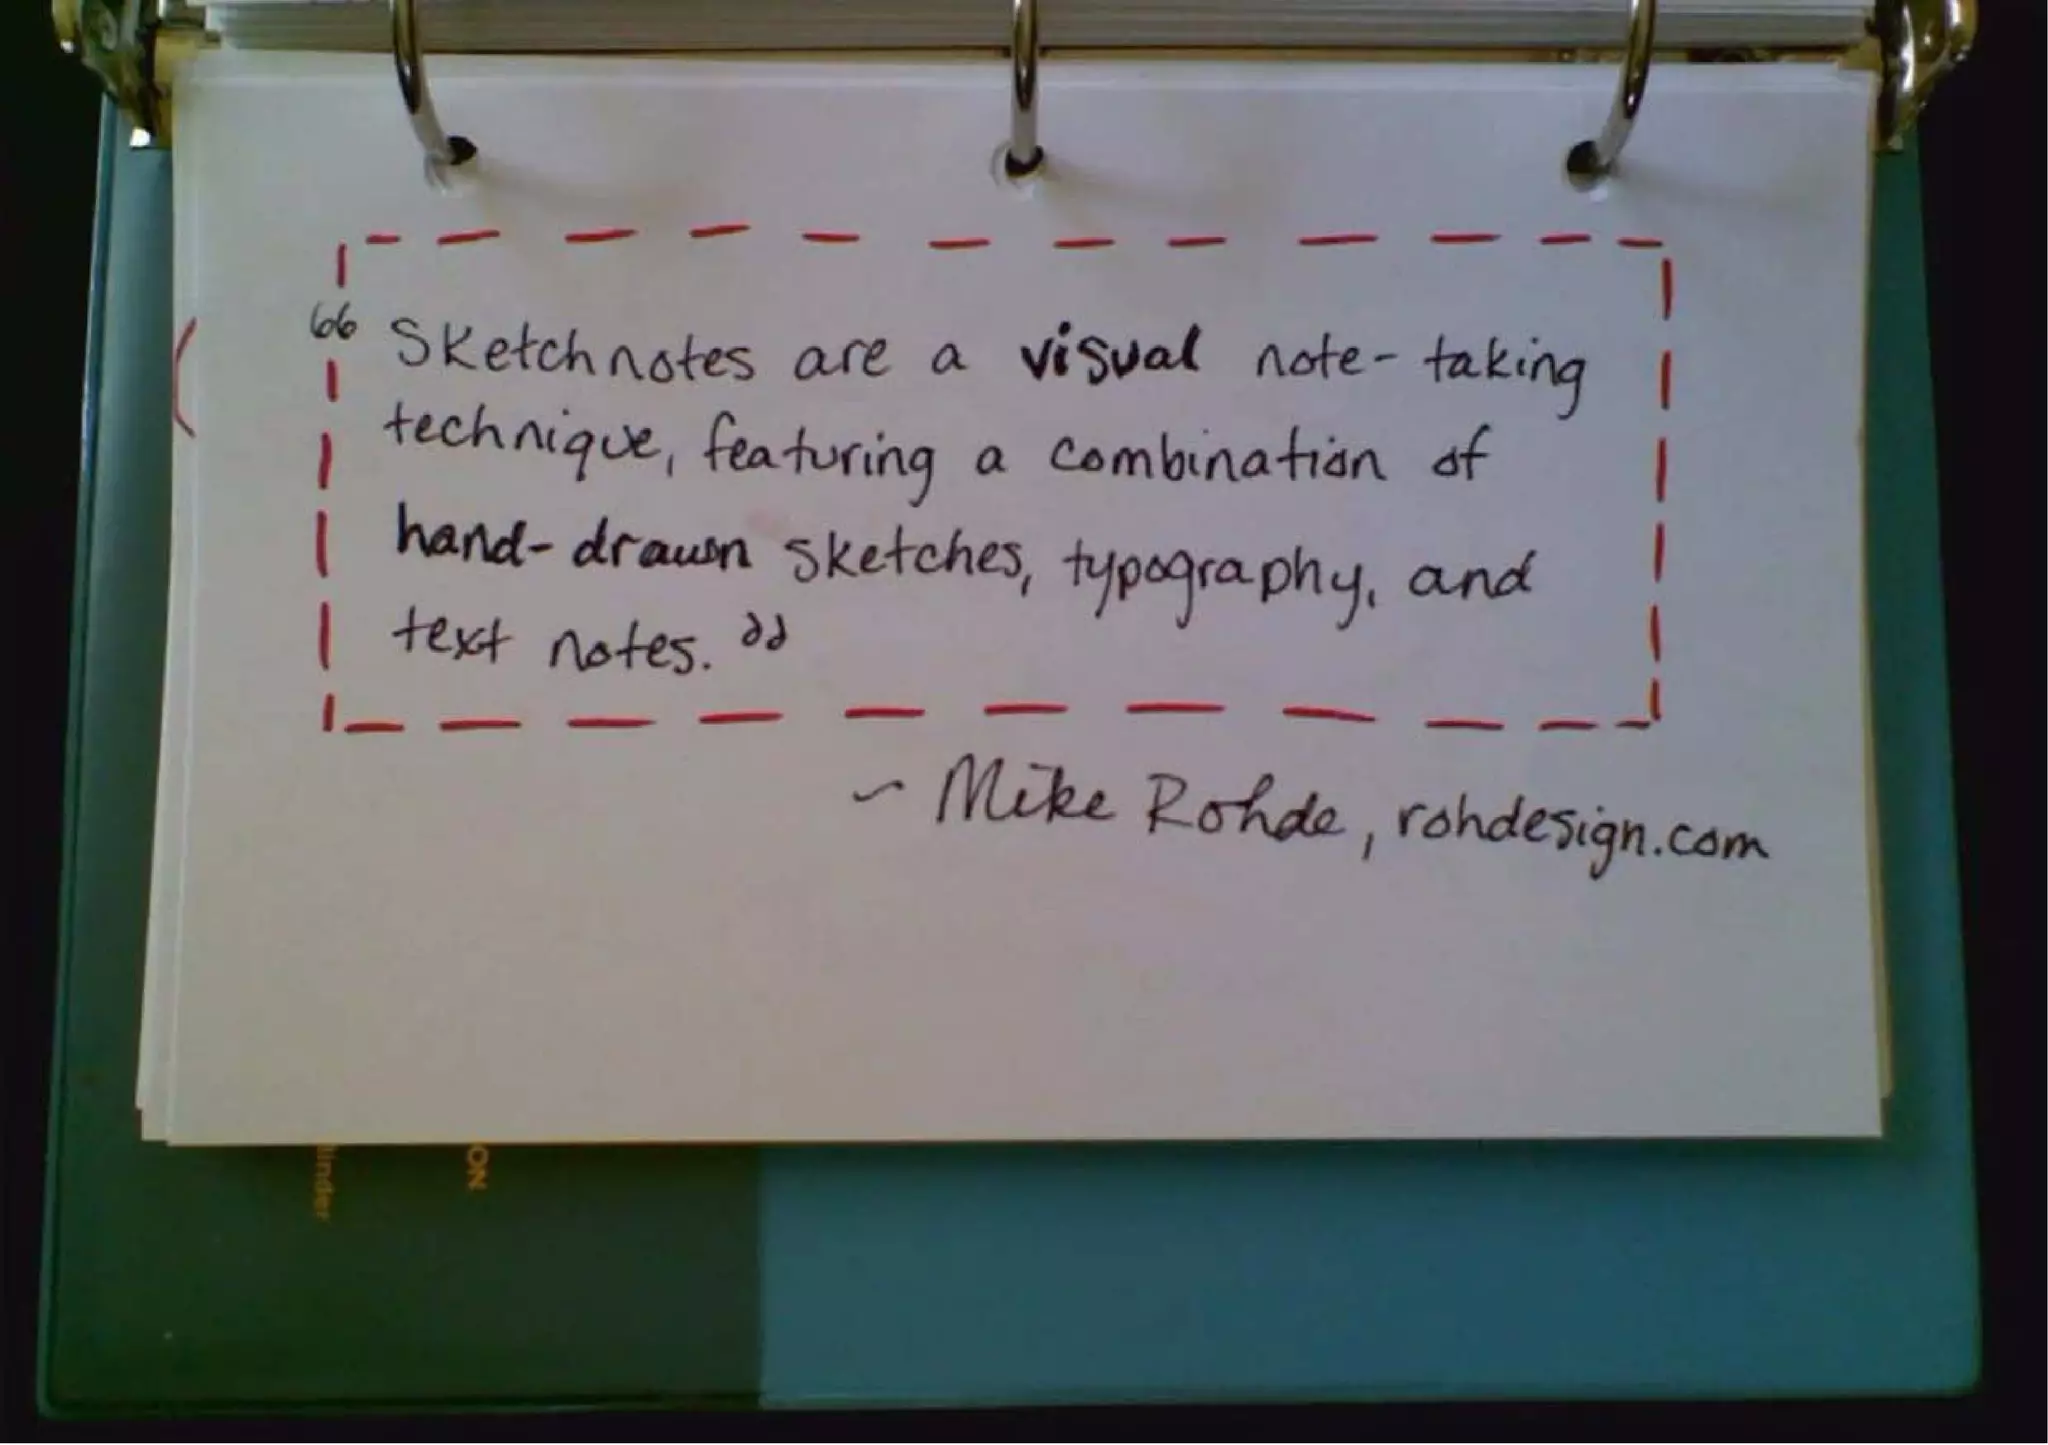 “Sketchnotes are a visual note-taking
technique, featuring a combination of
hand-drawn sketches, typography, and
text notes.”
~ Mike Rohde, rohdesign.com
linder
ON